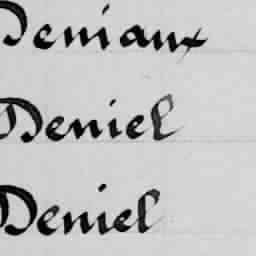 Deniaux
Deniel
Deniel